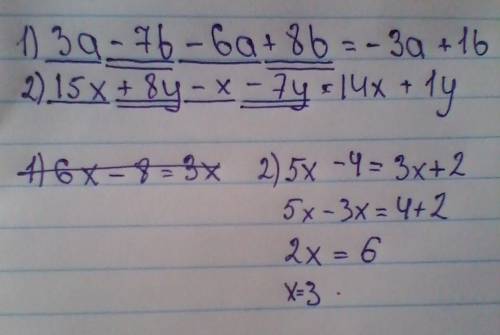 1) 3a - 7b - 6a + 8b = - 3a + 1b
2) 15x + 8y - x - 7y = 14x + 1y
1) 6x - 8 = 3x 2) 5x - 4 = 3x + 2
5x - 3x = 4 + 2
2x = 6
x = 3 .